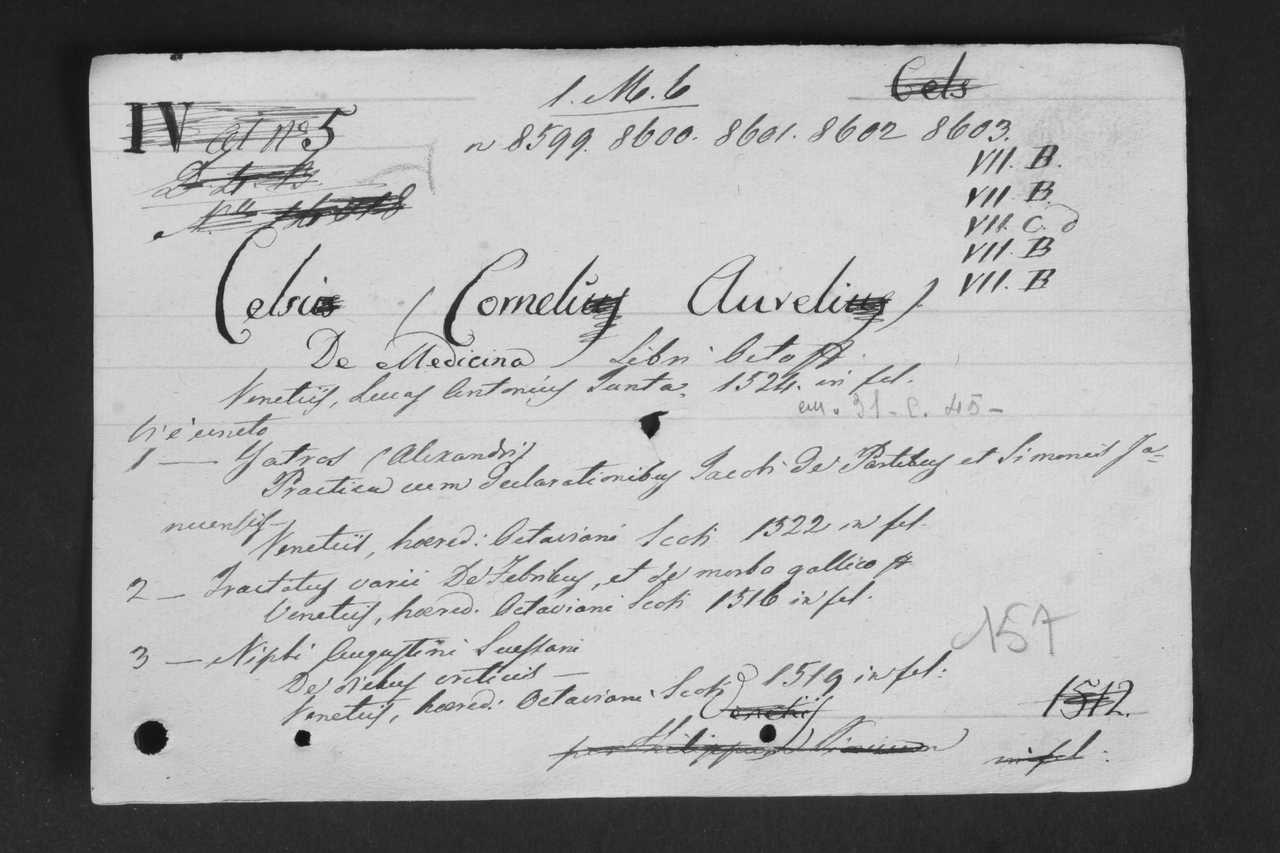 1. M. 6
Cels
IV at nº 5
n 8599. 8600. 8601. 8602 8603.
VII. B.
VII. B.
VII. C. d
VII. B
VII. B
Celsius (Cornelius Aurelius)
De Medicina Libri Octo
Venetiis, Lucas Antonius Junta, 1524. in fol.
31 - C. 45 -
Vi è unito
1 — Yatros (Alexandri)
Practica cum declarationibus Jacobi De Partibus et Simonis Ja=
nuensis —
Venetiis, hœred: Octaviani Scoti 1522 in fol.
2 — Tractatus varii De Febribus, et de morbo gallico
Venetiis, hœred: Octaviani Scoti 1516 in fol.
157
3 — Niphi Augustini Suessani
De diebus criticis —
Venetiis, hœred: Octaviani Scoti 1519 in fol:
Venetiis
1512.
per Philippum Pincium
in fol: